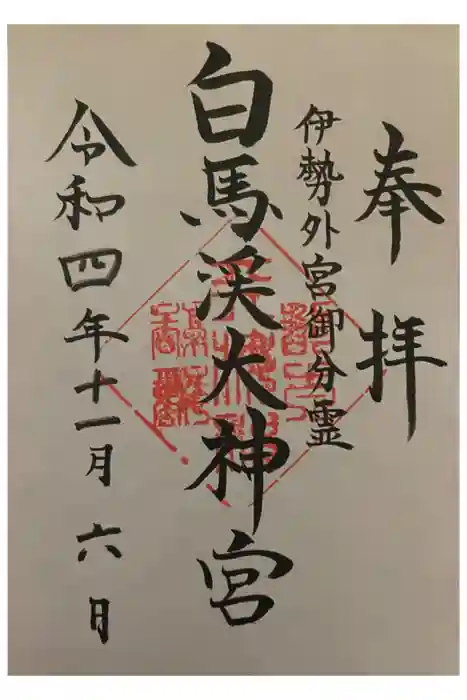 奉拝
伊勢外宮御分霊
白馬渓大神宮
令和四年十一月六日